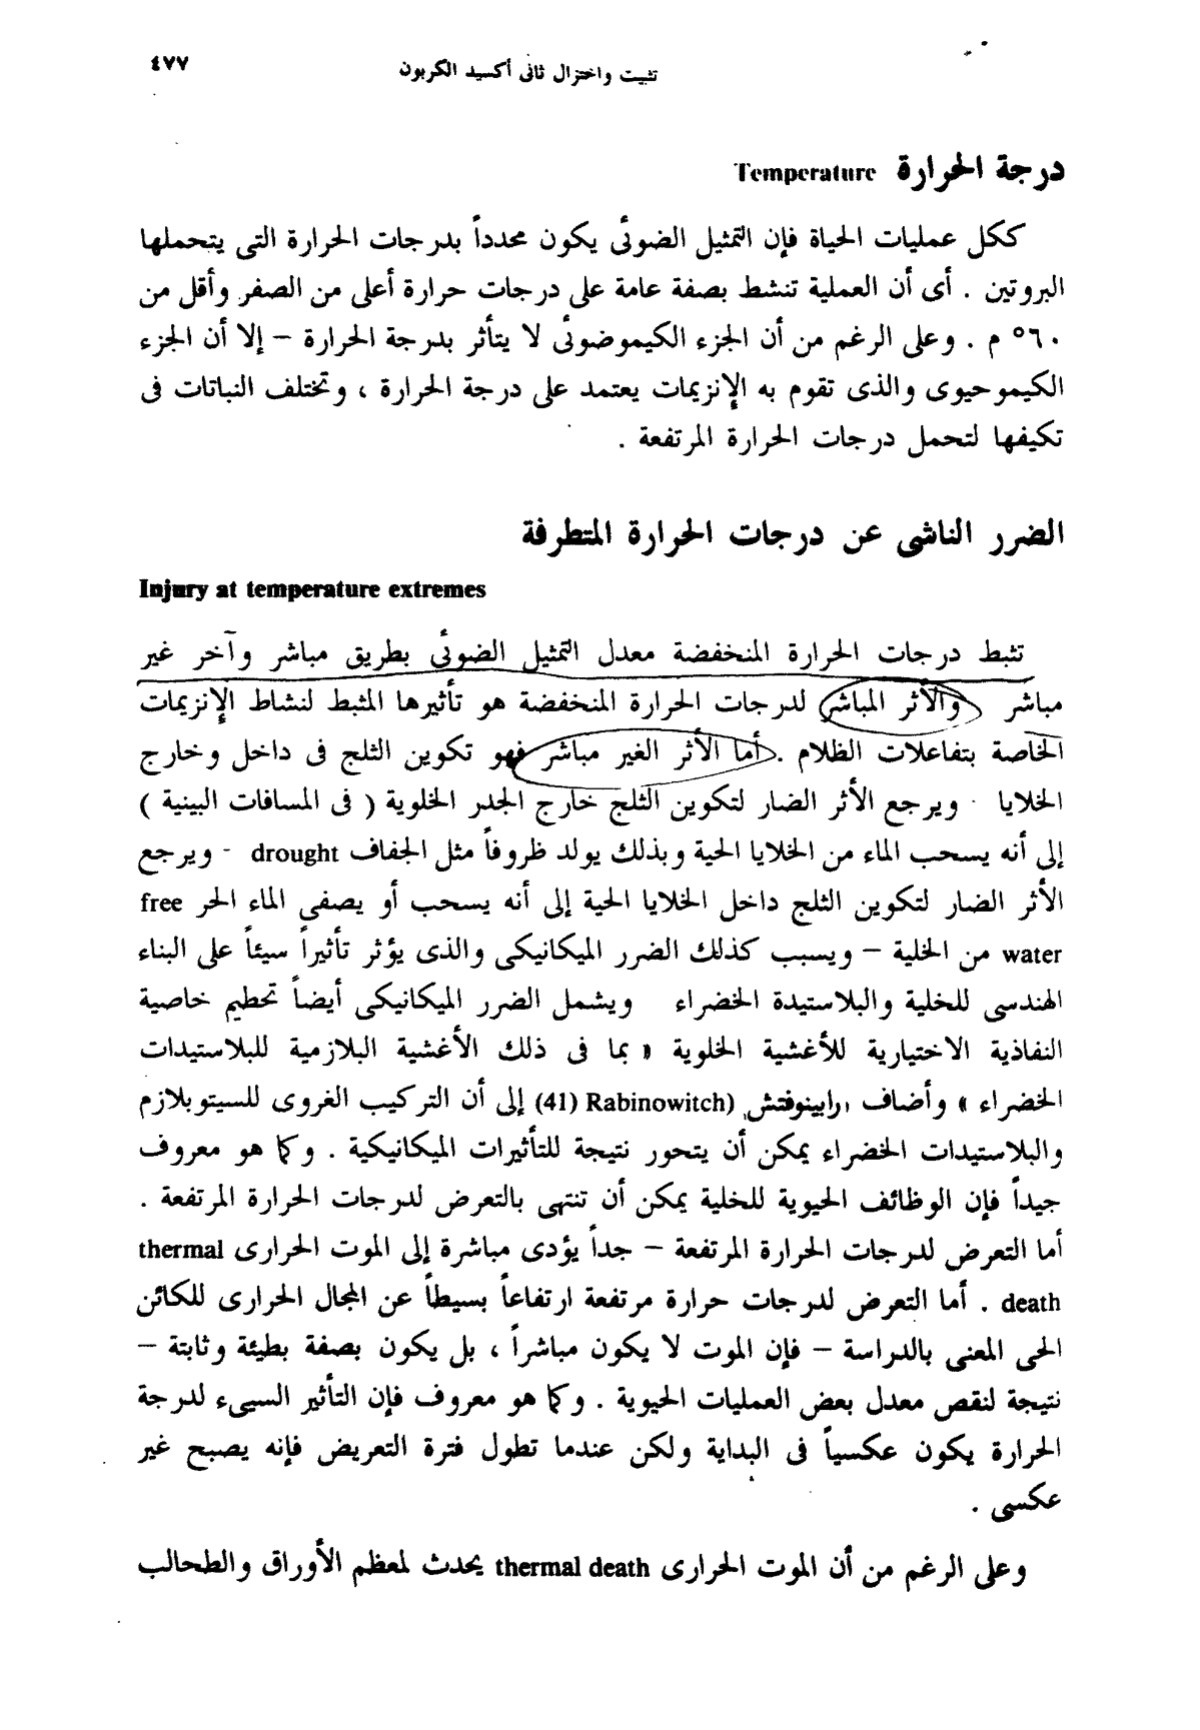 تثبيت واختزال ثانى أكسيد الكربون ٤٧٧
درجة الحرارة Temperature
ككل عمليات الحياة فإن التمثيل الضوئى يكون محدداً بدرجات الحرارة التى يتحملها
البروتين . أى أن العملية تنشط بصفة عامة على درجات حرارة أعلى من الصفر وأقل من
٦٠° م . وعلى الرغم من أن الجزء الكيموضوئى لا يتأثر بدرجة الحرارة – إلا أن الجزء
الكيموحيوى والذى تقوم به الإنزيمات يعتمد على درجة الحرارة ، وتختلف النباتات فى
تكيفها لتحمل درجات الحرارة المرتفعة .
الضرر الناشى عن درجات الحرارة المتطرفة
Injury at temperature extremes
تثبط درجات الحرارة المنخفضة معدل التمثيل الضوئى بطريق مباشر وآخر غير
مباشر والأثر المباشر لدرجات الحرارة المنخفضة هو تأثيرها المثبط لنشاط الإنزيمات
الخاصة بتفاعلات الظلام . أما الأثر الغير مباشر فهو تكوين الثلج فى داخل وخارج
الخلايا - ويرجع الأثر الضار لتكوين الثلج خارج الجدر الخلوية ( فى المسافات البينية )
إلى أنه يسحب الماء من الخلايا الحية وبذلك يولد ظروفاً مثل الجفاف drought - ويرجع
الأثر الضار لتكوين الثلج داخل الخلايا الحية إلى أنه يسحب أو يصفى الماء الحر free
water من الخلية – ويسبب كذلك الضرر الميكانيكى والذى يؤثر تأثيراً سيئاً على البناء
الهندسى للخلية والبلاستيدة الخضراء ويشمل الضرر الميكانيكى أيضاً تحطيم خاصية
النفاذية الاختيارية للأغشية الخلوية « بما فى ذلك الأغشية البلازمية للبلاستيدات
الخضراء » وأضاف رابينوفتش (Rabinowitch (41) إلى أن التركيب الغروى للسيتوبلازم
والبلاستيدات الخضراء يمكن أن يتحور نتيجة للتأثيرات الميكانيكية . وكما هو معروف
جيداً فإن الوظائف الحيوية للخلية يمكن أن تنتهى بالتعرض لدرجات الحرارة المرتفعة .
أما التعرض لدرجات الحرارة المرتفعة – جداً يؤدى مباشرة إلى الموت الحرارى thermal
death . أما التعرض لدرجات حرارة مرتفعة ارتفاعاً بسيطاً عن المجال الحرارى للكائن
الحى المعنى بالدراسة – فإن الموت لا يكون مباشراً ، بل يكون بصفة بطيئة وثابتة –
نتيجة لنقص معدل بعض العمليات الحيوية . وكما هو معروف فإن التأثير السيىء لدرجة
الحرارة يكون عكسياً فى البداية ولكن عندما تطول فترة التعريض فإنه يصبح غير
عكسى .
وعلى الرغم من أن الموت الحرارى thermal death يحدث لمعظم الأوراق والطحالب